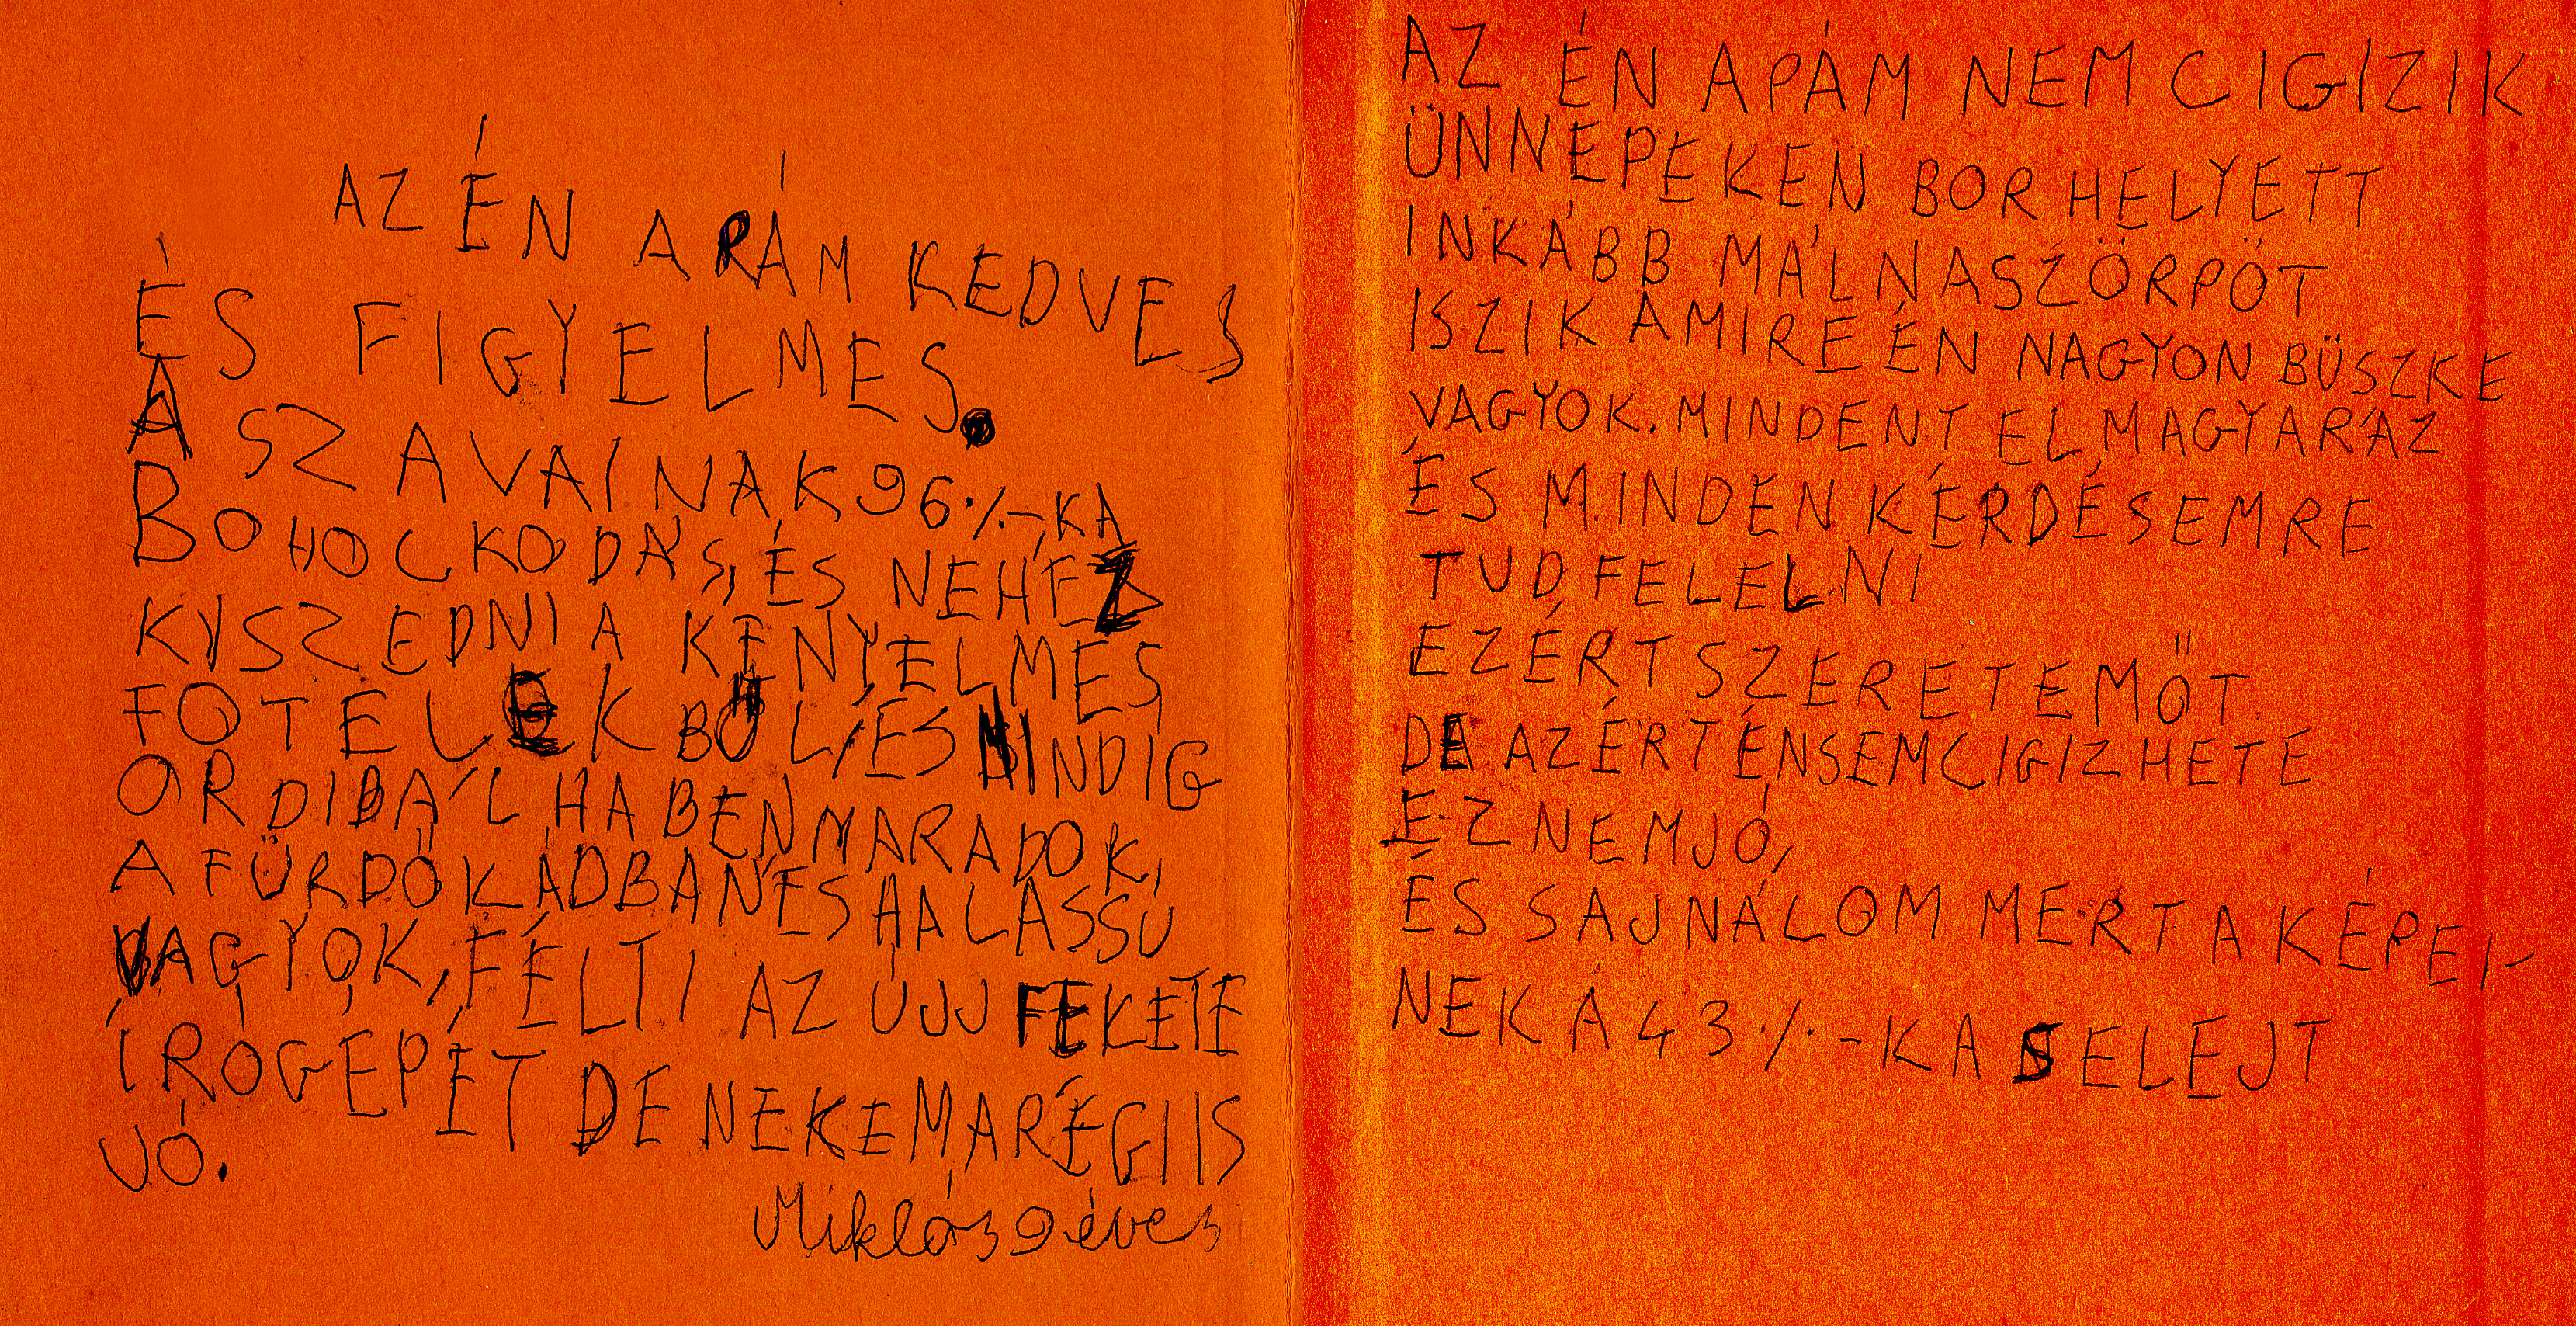 AZ ÉN APÁM KEDVES
ÉS FIGYELMES.
A SZAVAINAK 96%-KA
BOHOCKODÁS, ÉS NEHÉZ
KYSZEDNI A KÉNYELMES
FOTELEKBŐL, ÉS MINDIG
ORDIBÁL HA BENMARADOK,
A FÜRDŐKÁDBAN ÉS HA LASSÚ
VAGYOK, FÉLTI AZ ÚJJ FEKETE
ÍRÓGÉPÉT DE NEKEM A RÉGI IS
JÓ.
Miklós 9 éves
AZ ÉN APÁM NEM CIGIZIK
ÜNNEPEKEN BOR HELYETT
INKÁBB MÁLNASZÖRPÖT
ISZIK AMIRE ÉN NAGYON BÜSZKE
VAGYOK. MINDENT ELMAGYARÁZ
ÉS MINDEN KÉRDÉSEMRE
TUD FELELNI
EZÉRT SZERETEM ŐT
DE AZÉRT ÉN SEM CIGIZHETE
EZ NEM JÓ,
ÉS SAJNÁLOM MERT A KÉPEI-
NEK A 43%-KA SELEJT